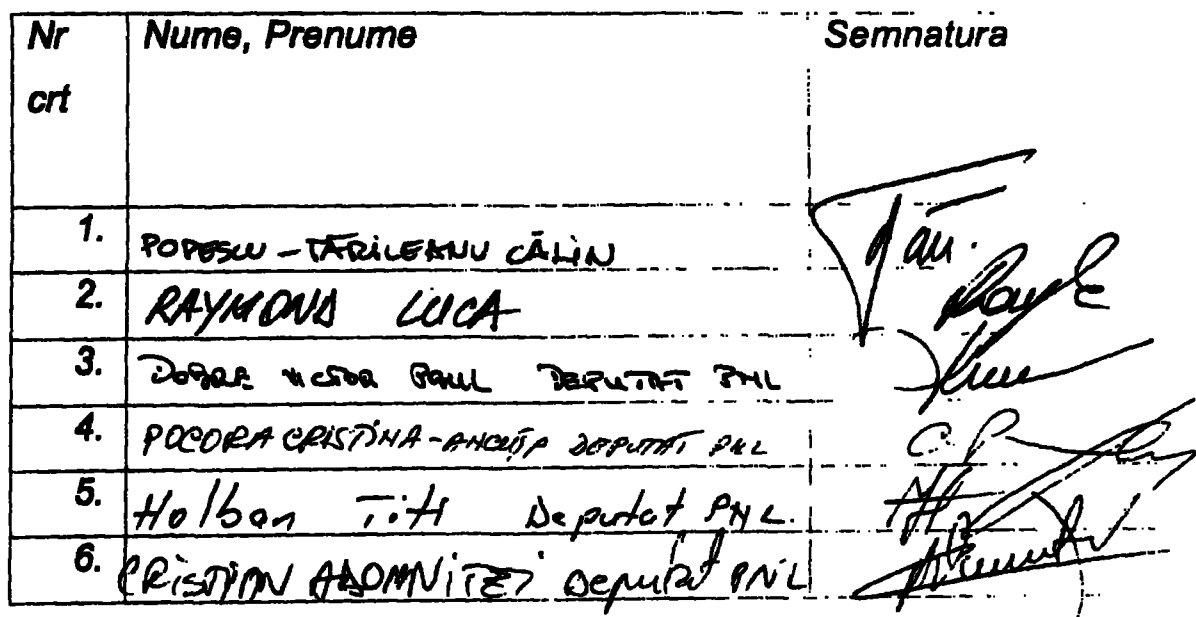 Nr crt Nume, Prenume Semnatura
1. POPESCU - TĂRICEANU CĂLIN
2. RAYMOND LUCA
3. DOBRE VICTOR PAUL DEPUTAT PNL
4. POCORA CRISTINA-ANCUȚA DEPUTAT PNL
5. Holban Titi Deputat PNL.
6. CRISTIAN ADOMNIȚEI Deputat PNL